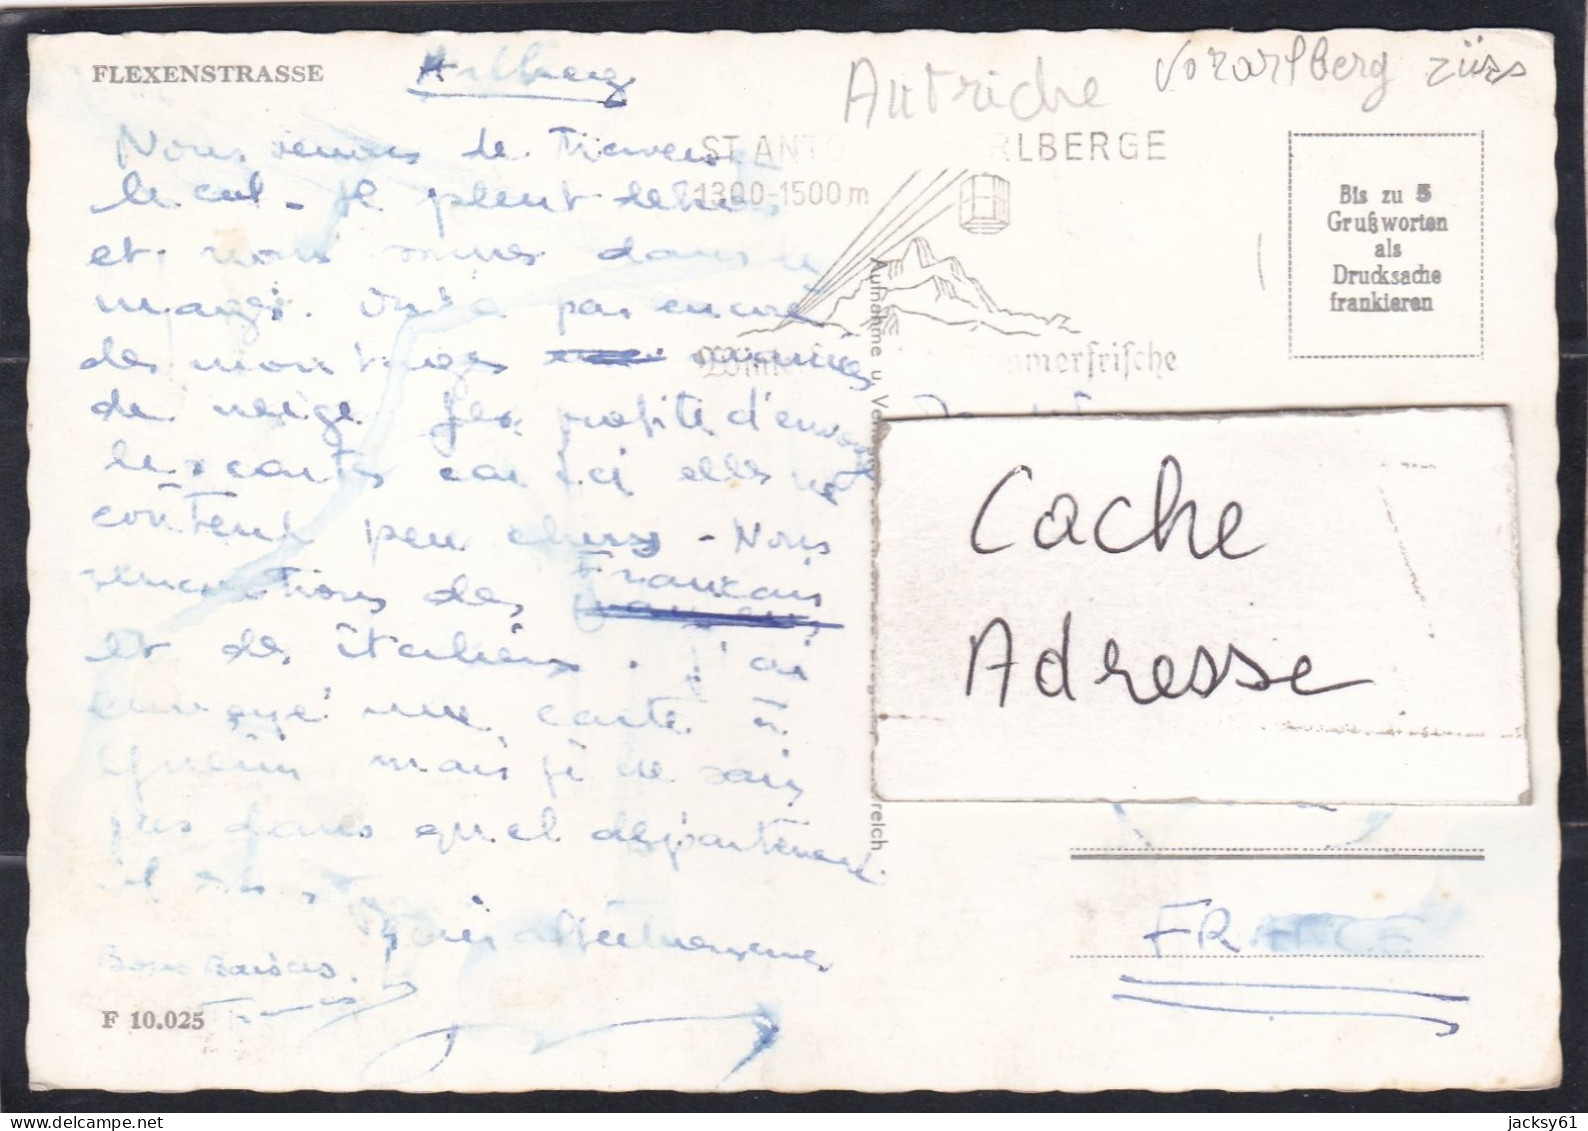 FLEXENSTRASSE
Arlberg
Autriche Vorarlberg Zürs
ST. ANT RLBERGE
1300-1500 m
Sommerfrische
Bis zu 5
Grußworten
als
Drucksache
frankieren
Nous venons de traverser
le col - Il pleut
et nous sommes dans
pas encore
des montagnes
de neige. profite d'envoyer
les cartes car ici elles ne
coûtent peu chers - Nous
rencontrons des Français
et des italiens. j'ai
envoyé une carte à
mais je ne sais
pas dans quel département
il
affectueusement
Bons Baisers
F 10.025
Aufnahme u.
reich
Cache
Adresse
FRANCE
jacksy61
www.delcampe.net